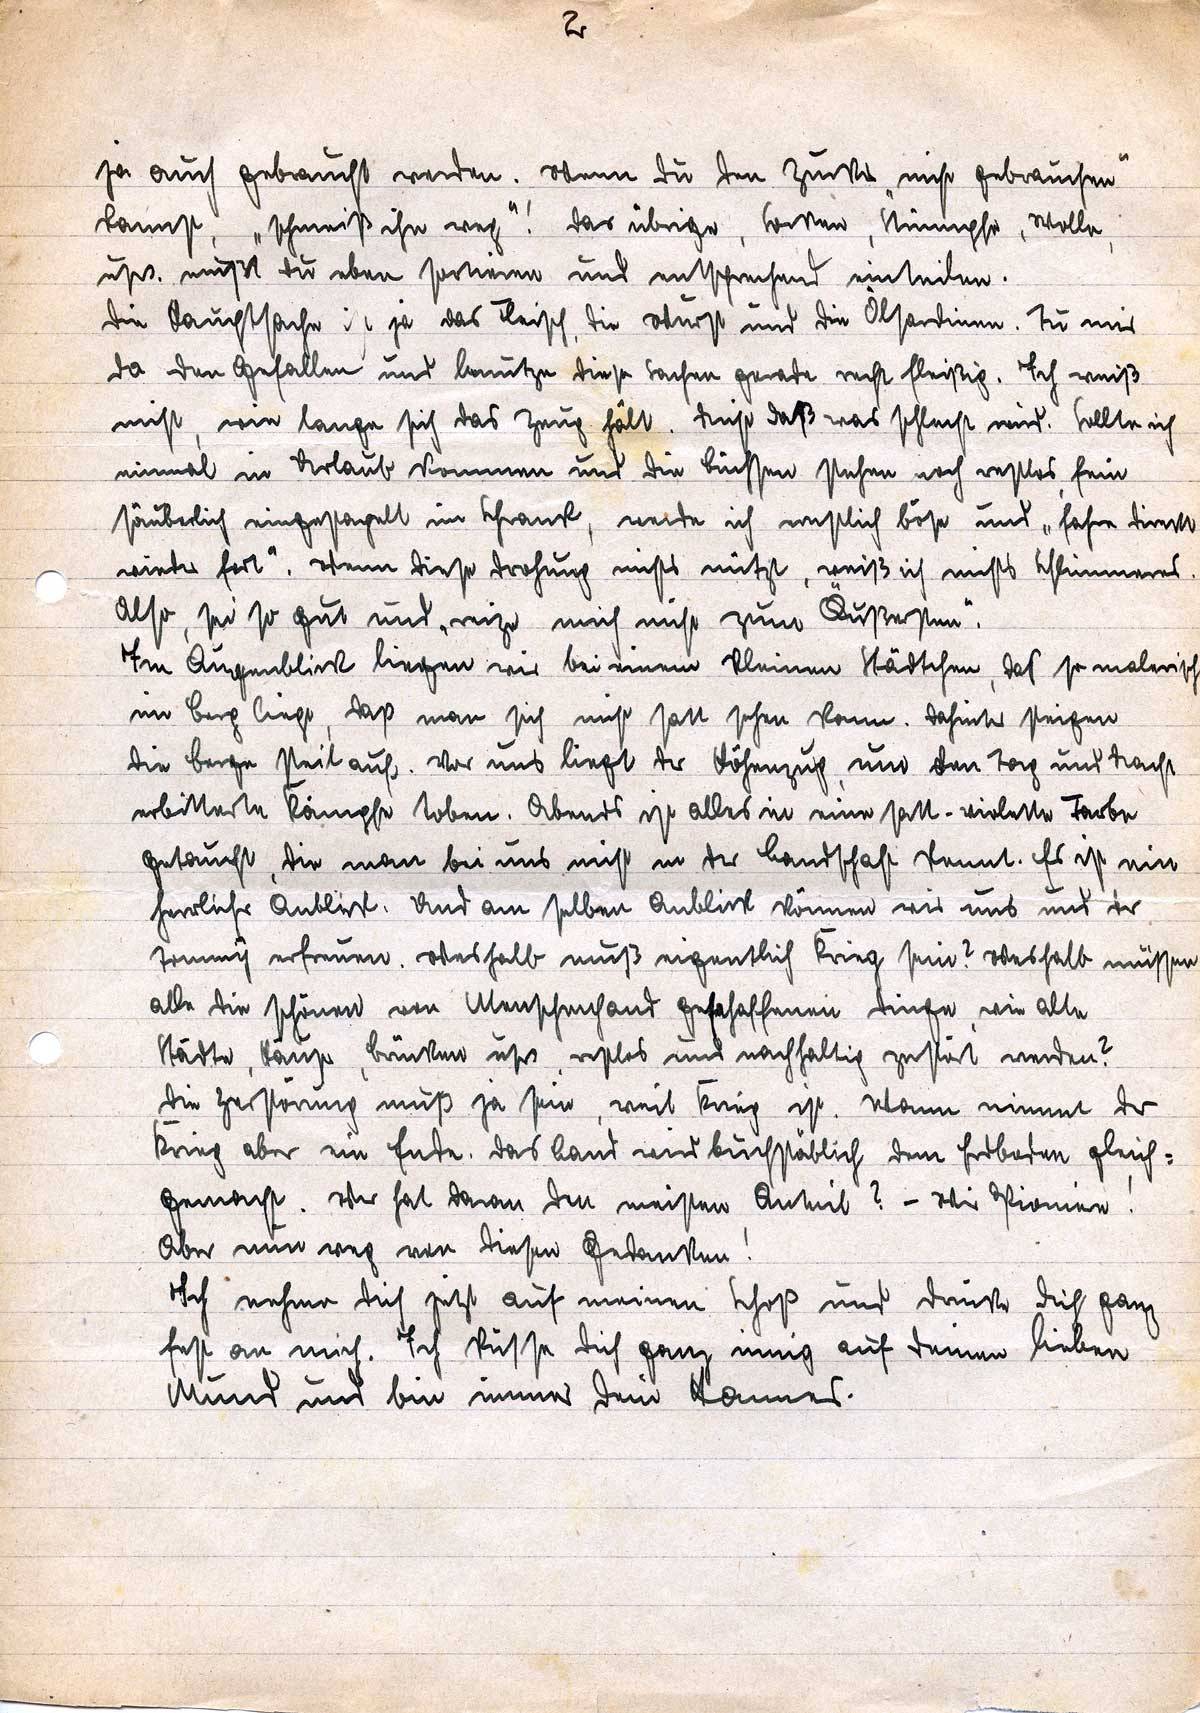 2
ja auch gebraucht werden. Wenn Du den Zucker „nicht gebrauchen"
kannst, „schmeiß ihn weg"! Das übrige, Socken, Strümpfe, Wolle,
usw. mußt Du eben sortieren und entsprechend einteilen.
Die Hauptsache ist ja das Fleisch, die Wurst und die Ölsardinen. Tu mir
da den Gefallen und benutze diese Sachen gerade recht fleißig. Ich weiß
nicht, wie lange sich das Zeug hält. Nicht daß was schlecht wird. Sollte ich
einmal in Urlaub kommen und die Büchsen stehen noch restlos, fein
säuberlich eingestapelt im Schrank, werde ich ernstlich böse und „fahre direkt
wieder fort". Wenn diese Drohung nichts nützt, weiß ich nichts Schlimmeres.
Also, sei so gut und „reize mich nicht zum Äußersten".
Im Augenblick liegen wir bei einem kleinen Städtchen, das so malerisch
im Berg liegt, daß man sich nicht satt sehen kann. Dahinter steigen
die Berge steil auf. Vor uns liegt der Höhenzug, um den Tag und Nacht
erbitterte Kämpfe toben. Abends ist alles in eine satt-violette Farbe
getaucht, die man bei uns nicht in der Landschaft kennt. Es ist ein
herrlicher Anblick. Und am selben Anblick können wir uns und der
Tommy erfreuen. Weshalb muß eigentlich Krieg sein? Weshalb müssen
alle die schönen von Menschenhand geschaffenen Dinge, wie alte
Städte, Häuser, Brücken usw. restlos und nachhaltig zerstört werden?
Die Zerstörung muß ja sein, weil Krieg ist. Wann nimmt der
Krieg aber ein Ende. Das Land wird buchstäblich dem Erdboden gleich=
gemacht. Wer hat daran den meisten Anteil? – Wir Pioniere!
Aber nun weg von diesen Gedanken!
Ich nehme Dich jetzt auf meinen Schoß und drücke Dich ganz
fest an mich. Ich küsse Dich ganz innig auf Deinen lieben
Mund und bin immer Dein Hannes.